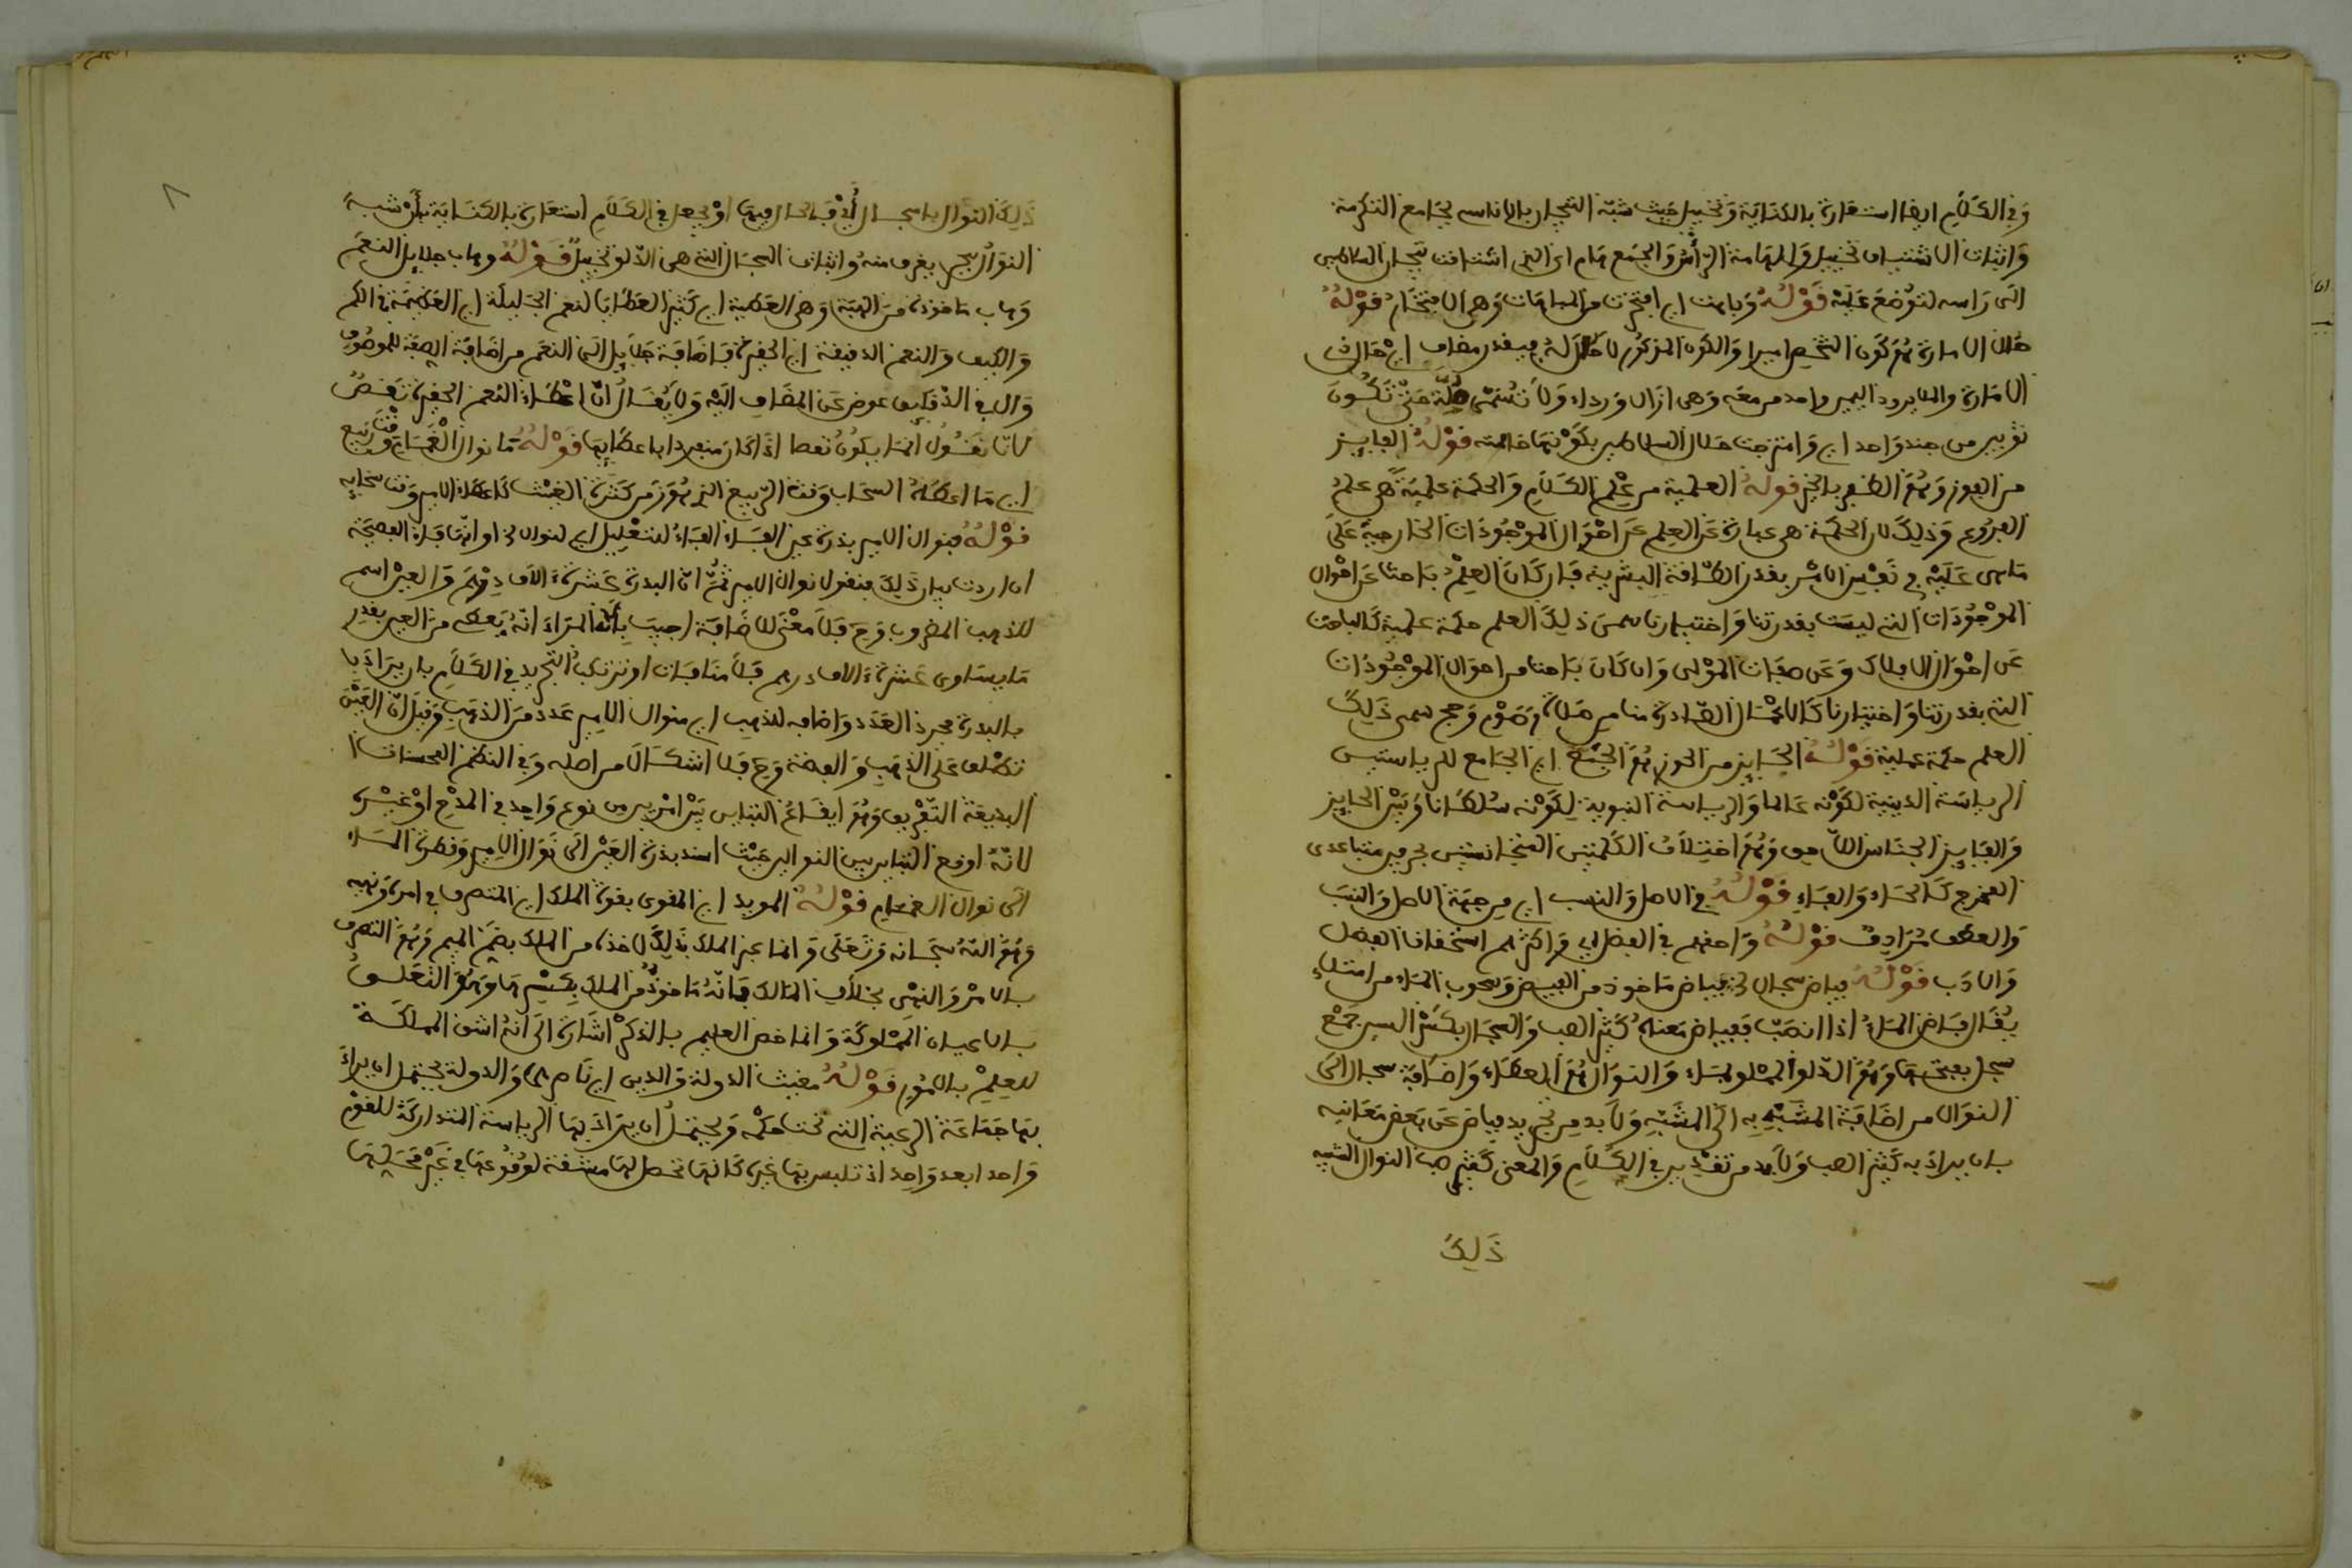 وَفِي الكَلَامِ ايضا استعارة بالكناية وَتخييل حيث شبّه التيجان بالاناسي بجامع التكرمة
وَاثبات الاشتياق تخييل وَالهامة الرّأس وَالجمع هام اى التى اشتاقت تيجان السلاطين
الى رَاسه لتوُضعَ عَليْه قَوْلُهُ وَباهت اي افتخرت من المباهات وَهي الافتخار قَوْلُهُ
حُلل الامارة هُوَ كَون الشخص اميرا وَالكون المذكور لا حُلل لهُ فيقدر مضاف اي حُلل ذي
الامَارة والحلة برود اليمن واحد من معَه وَهي ازار وَرداء وَلا تُسمّى حُلّة حَتّى تَكُونَ
ثوبين من جنس وَاحد اي وَافتخرت حلل السلاطين بكَوْنها خالصته قَوْلُهُ الفايز
من الفوز وَهُوَ الظفر بالخير قولهُ العلمية من علم الكَلَامِ وَالحكمة علمية هي علم
الفروع وَذلك لان الحكمة هي عبارة عَن العِلم عَن احْوَال الموْجُودَات الخارجية عَلَى
مَا هى عَليْه في نَفْس الامْر بقدر الطّاقة البشرية فَان كَانَ العِلمُ بَاحثا عَن احْوال
الموْجُودَات التي ليسَت بقدرتنا وَاختيارنا سمى ذلك العلم حكمة علمية كَالباحث
عَن احْوَال الافلاك وَعَن صفات المَوْلى وَان كَانَ بَاحثا من احوال الموْجُودَات
التي بقدرتنا وَاختيارنا كَالاعْمَال الصّادرة منا من صَلاة وَصَوْم وَحج سمى ذَلِكَ
العلم حكمة عملية قَوْلُهُ الحَايز من الحوز هُوَ الجَمْع اي الجَامع للرياستين
الرياسَة الدينية لكَوْنه عَالما وَالرياسة الدنيوية لِكَوْنه سُلطَانا وَبَيْن الحايز
وَالفايز الجنَاس اللّاحق وَهُوَ اختِلَاف الكَلمتين المتجانستين بحرفين متباعدى
المخرج كَالحَاء وَالفَاءِ قَوْلُهُ فِي الاصل وَالنسب اي مِن جهَة الاصل وَالنسَب
وَالعطف مُرَادِفٌ قَوْلُهُ وَاحقهم في الفضل اي وَاكثرهم استحقاقا الفضل
وَالادَب قَوْلُهُ فياض سجال الخ فياض مَاخوذ من الفيض وَهو صب المَاء من امتلاءٍ
يُقَال فَاض المَاءُ اذا انصَبّ فَفياض مَعناهُ كَثير الصب وَالسجال بكَسْر السين جَمْعُ
سجل بفتحهَا وَهُوَ الدّلو المملو بالمَاء وَالنوَال هُوَ العطَاء وَاضَافة سجال الى
النوَال من اضَافَة المشَبّه بِه الى المشَبّهِ وَلَا بد مِن تجريد فياض عَن بَعض مَعَانيه
بان يراد به كَثير الصب وَلَا بد من تقْدير في الكَلامِ وَالمعنى كَثير صب النوال الشبيه
ذَلِكَ
ذَلِكَ النَوَال بالسجال لاقبال فيهَا اوْ يجعل في الكَلَامِ استعارة بالكِنَاية بأن شبهَ
النوَال ببحر يغرف منهُ وَاثبات السجَال التي هي الدّلو تخييل قَوْلُهُ وهاب جلايل النعم
وَهاب مَاخوذ مِن الهبَة وَهي العَطية اي كَثير العطَايا النعم الجَليلَة اي العَظيمَة في الكَم
وَالكَيف وَالنعم الدقيقة اي الحقيرة فَاضَافة جَلَايل الى النعم من اضَافة الصِفة للموصُوف
وَال في الدّقايق عوض عَن المضَاف اليْه وَلا يُقَالُ انّ اعْطَاءَ النعم الحقيرة نَقصٌ
لانّا نقُول انمَا يكُونُ نقصا اذَا كَان منفردا باعطَايها قَوْلُهُ مَا نوال الغَمَام وَقْت رَبيع
اي مَا اعطَاهُ السحَاب وَقت الرّبيع الذي هُوَ زَمن كَثرة الغَيث كَاعطَاء الامير وَقت سخايه
قَوْلُهُ فنوال الامير بدرة عين الفَاء الفَاءُ للتعْليل اي لنوال الخ او انّهَا فَاء الفصيحَة
ان اردت بيان ذَلكَ فنقول نوال الامير ثُمّ ان البدرة عَشرة الاف دِرْهَم وَالعين اسم
للذهب المضروب وَح فَلا معْنَى للاضَافة اجيبَ بِانّ المرَادَ انّهُ يَعطى من العين بقدر
مَا يساوى عَشرة الاف درهم فَلَا منافات او نرتكب التجريد في الكَلَامِ بان يرَادَ بَا
بالبدرة مجرد العَدَد وَاضَافه للذهب اي فنوال الامير عَدد مِن الذهب وَقيل انّ العَيْن
تطلق عَلى الذهب وَالفضة وَح فَلا اشكَالَ من اصله وَفي النظم من المحسنات ا
البديعة التّفْريق وَهُوَ ايقَاع التباين بَيْن امْرين من نوع وَاحِد في المدْح اوْ غيْره
لانّهُ اوقع التباين بين النوالين حَيْث اسند بدرة العَيْن الى نَوَال الامِير وَقطرة المَاء
الى نوال الغمَام قَوْلُهُ المويد اي المقوى بقوة الملك اي المتصرف في امره وَنهيه
وَهُوَ اللّهُ سبحَانه وَتعَلى وَانما عبر الملك بذلك لاخذه من الملك بضم الميم وَهُوَ التصرف
بالامْر وَالنهى بخلاف المالك فَانّهُ مَاخوذ من الملك بكَسْرهَا وَهُوَ التعَلق
بالاعيان المَمْلوكَة وَانما خص العليم بالذكْر اشَارة الى انهُ اشق المملكَة
للعِلْم بالامُور قَوْلُهُ مغيث الدولة وَالدين اي نَاصرهَا وَالدولة يحتمل ان يرادَ
بهَا جمَاعَة الرعية التي تحت حكْمه وَيحتملُ ان يرَادَ بهَا الرياسة المتداركَة للقوْم
وَاحدا بعد وَاحد اذ تلبس بهَا غيره كَانهَا تحصل لهَا مشقة لوُقُوعهَا في غَيْر مَحَلهَا